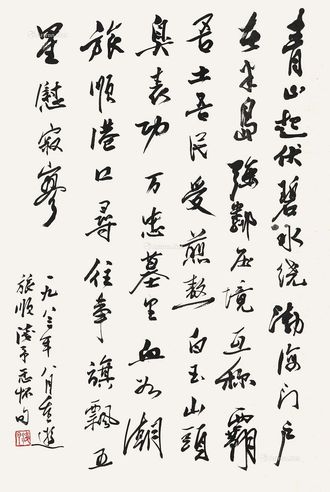 青山起伏碧水绕渤海门户
在半岛强邻压境画称霸
吾土吾民受煎熬白玉山頭
臭表功万忠墓里血如潮
旅顺港口尋往事旗飘五
星慰寂寥
一九八三年八月重遊
旅顺